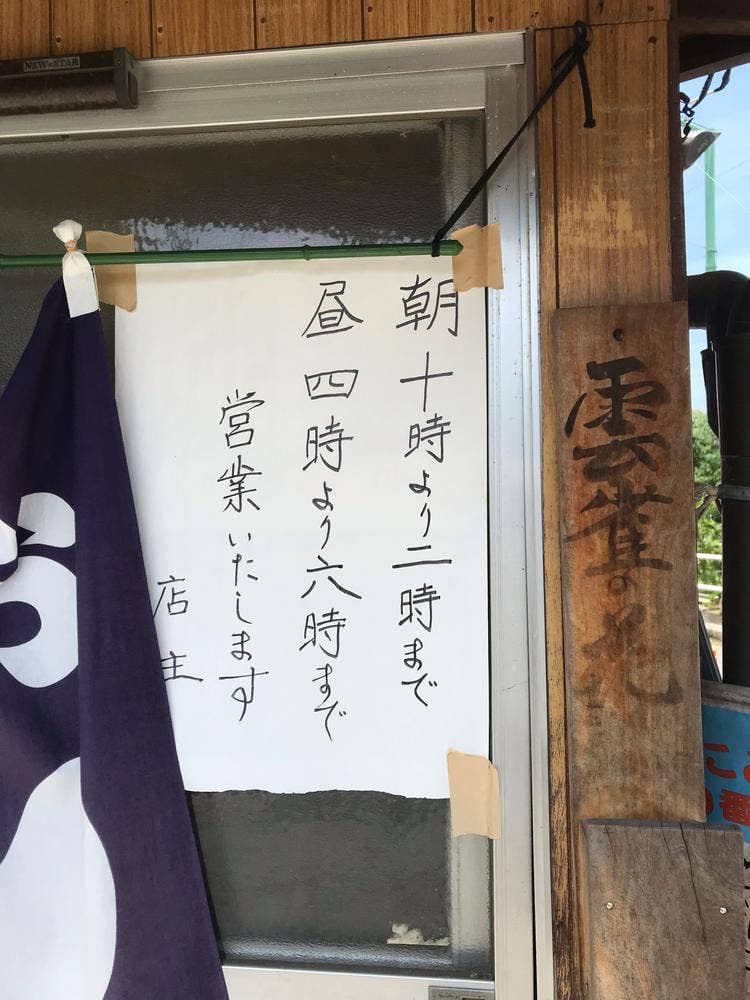 NEW★STAR
朝十時より二時まで
昼四時より六時まで
営業いたします
店主
雲雀の花
こ
番